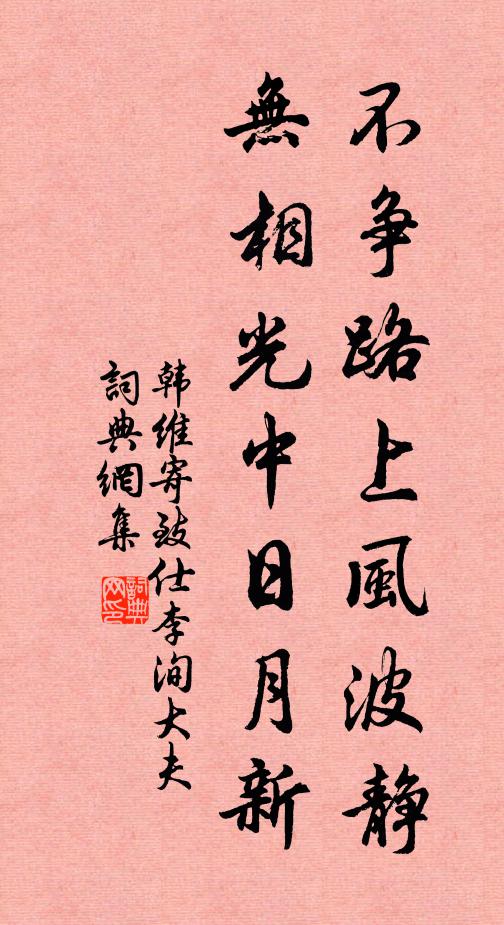 不争路上風波静
無相光中日月新
韩維寄致仕李洵大夫
詞典網集
詞典网印